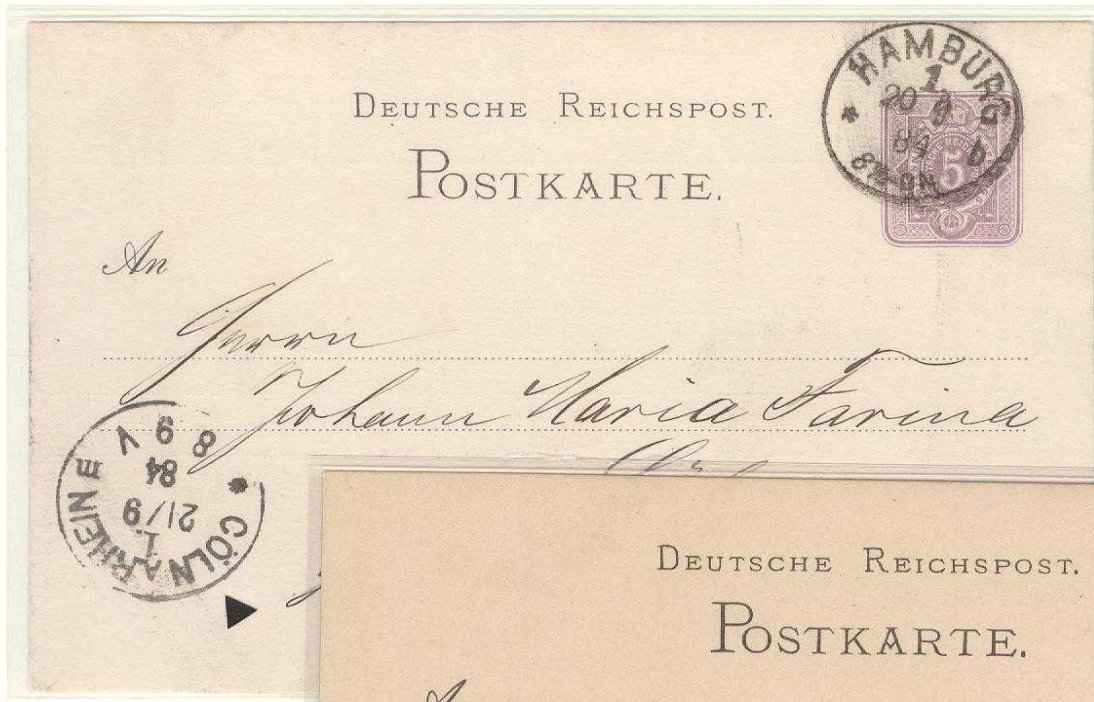 DEUTSCHE REICHSPOST.
POSTKARTE.
HAMBURG
1.
20 9
84
b
8½-9N
5
An
Herrn
Johann Maria Farina
CÖLN A. RHEINE
1.
21/9
84
8 9 V
DEUTSCHE REICHSPOST.
POSTKARTE.